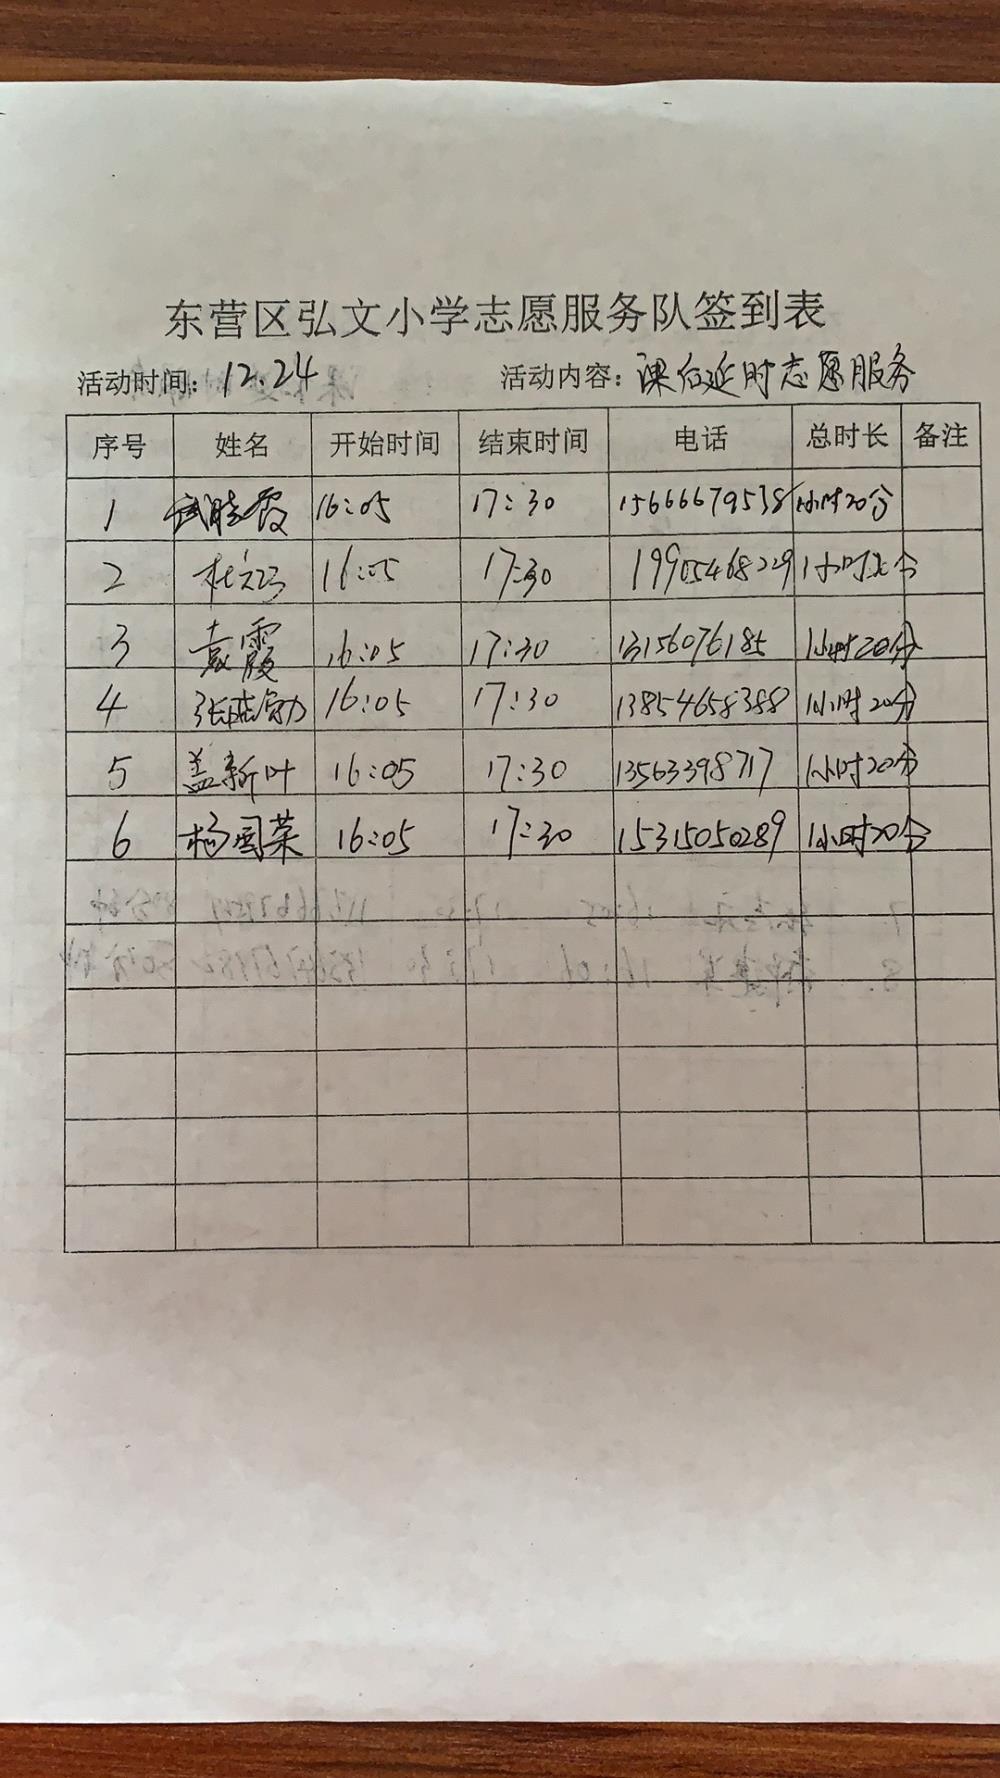 东营区弘文小学志愿服务队签到表
活动时间：12.24 活动内容：课后延时志愿服务
序号 姓名 开始时间 结束时间 电话 总时长 备注
1 16:05 17:30 15666679538 1小时20分
2 16:05 17:30 19905468229 1小时20分
3 袁霞 16:05 17:30 13156076185 1小时20分
4 16:05 17:30 13854658388 1小时20分
5 盖新叶 16:05 17:30 13563398717 1小时20分
6 杨国荣 16:05 17:30 15315050289 1小时20分